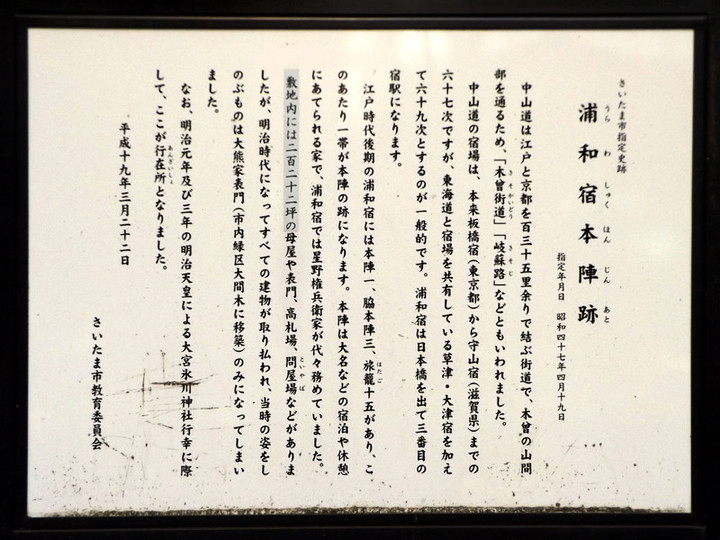 さいたま市指定史跡
浦和宿本陣跡
うらわしゅくほんじんあと
指定年月日 昭和四十七年四月十九日
中山道は江戸と京都を百三十五里余りで結ぶ街道で、木曽の山間
部を通るため、「木曽街道」「岐蘇路」などともいわれました。
きそかいどう きそじ
中山道の宿場は、本来板橋宿(東京都)から守山宿(滋賀県)までの
六十七次ですが、東海道と宿場を共有している草津・大津宿を加え
て六十九次とするのが一般的です。浦和宿は日本橋を出て三番目の
宿駅になります。
江戸時代後期の浦和宿には本陣一、脇本陣三、旅籠十五があり、こ
はたご
のあたり一帯が本陣の跡になります。本陣は大名などの宿泊や休憩
にあてられる家で、浦和宿では星野権兵衛家が代々務めていました。
敷地内には二百二十二坪の母屋や表門、高札場、問屋場などがありま
といやば
したが、明治時代になってすべての建物が取り払われ、当時の姿をし
のぶものは大熊家表門(市内緑区大間木に移築)のみになってしまい
ました。
なお、明治元年及び三年の明治天皇による大宮氷川神社行幸に際
して、ここが行在所となりました。
あんざいしょ
平成十九年三月二十二日
さいたま市教育委員会